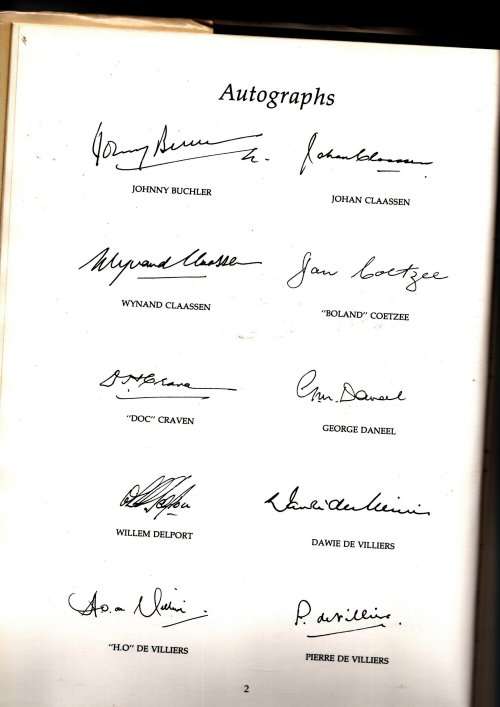 Autographs
Johnny Buchler
JOHNNY BUCHLER
Johan Claassen
JOHAN CLAASSEN
Wynand Claassen
WYNAND CLAASSEN
Jan Coetzee
"BOLAND" COETZEE
D H Craven
"DOC" CRAVEN
G.M. Daneel
GEORGE DANEEL
WILLEM DELPORT
Dawie de Villiers
DAWIE DE VILLIERS
"H.O" DE VILLIERS
P. de Villiers.
PIERRE DE VILLIERS
2